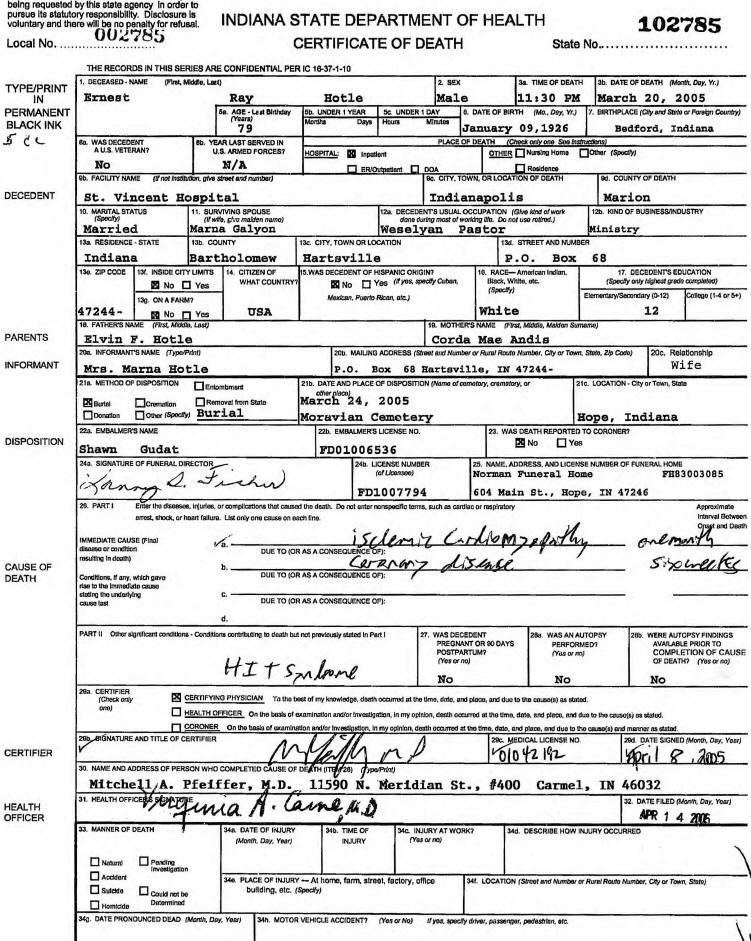 being requested by this state agency in order to
pursue its statutory responsibility. Disclosure is
voluntary and there will be no penalty for refusal.
INDIANA STATE DEPARTMENT OF HEALTH
102785
Local No. 002785
CERTIFICATE OF DEATH
State No.
THE RECORDS IN THIS SERIES ARE CONFIDENTIAL PER IC 16-37-1-10
TYPE/PRINT
IN
PERMANENT
BLACK INK
1. DECEASED - NAME (First, Middle, Last)
Ernest Ray Hotle
2. SEX
Male
3a. TIME OF DEATH
11:30 PM
3b. DATE OF DEATH (Month, Day, Yr.)
March 20, 2005
5a. AGE - Last Birthday
(Years)
79
5b. UNDER 1 YEAR
Months Days
5c. UNDER 1 DAY
Hours Minutes
6. DATE OF BIRTH (Mo., Day, Yr.)
January 09,1926
7. BIRTHPLACE (City and State or Foreign Country)
Bedford, Indiana
8a. WAS DECEDENT
A U.S. VETERAN?
No
8b. YEAR LAST SERVED IN
U.S. ARMED FORCES?
N/A
PLACE OF DEATH (Check only one See Instructions)
HOSPITAL: Inpatient
ER/Outpatient DOA
OTHER Nursing Home Other (Specify)
Residence
DECEDENT
9b. FACILITY NAME (If not institution, give street and number)
St. Vincent Hospital
9c. CITY, TOWN, OR LOCATION OF DEATH
Indianapolis
9d. COUNTY OF DEATH
Marion
10. MARITAL STATUS
(Specify)
Married
11. SURVIVING SPOUSE
(If wife, give maiden name)
Marna Galyon
12a. DECEDENT'S USUAL OCCUPATION (Give kind of work
done during most of working life. Do not use retired.)
Weselyan Pastor
12b. KIND OF BUSINESS/INDUSTRY
Ministry
13a. RESIDENCE - STATE
Indiana
13b. COUNTY
Bartholomew
13c. CITY, TOWN OR LOCATION
Hartsville
13d. STREET AND NUMBER
P.O. Box 68
13e. ZIP CODE
47244-
13f. INSIDE CITY LIMITS
No Yes
13g. ON A FARM?
No Yes
14. CITIZEN OF
WHAT COUNTRY?
USA
15. WAS DECEDENT OF HISPANIC ORIGIN?
No Yes (If yes, specify Cuban,
Mexican, Puerto Rican, etc.)
16. RACE— American Indian,
Black, White, etc.
(Specify)
White
17. DECEDENT'S EDUCATION
(Specify only highest grade completed)
Elementary/Secondary (0-12) College (1-4 or 5+)
12
PARENTS
18. FATHER'S NAME (First, Middle, Last)
Elvin F. Hotle
19. MOTHER'S NAME (First, Middle, Maiden Surname)
Corda Mae Andis
INFORMANT
20a. INFORMANT'S NAME (Type/Print)
Mrs. Marna Hotle
20b. MAILING ADDRESS (Street and Number or Rural Route Number, City or Town, State, Zip Code)
P.O. Box 68 Hartsville, IN 47244-
20c. Relationship
Wife
DISPOSITION
21a. METHOD OF DISPOSITION Entombment
Burial Cremation Removal from State
Donation Other (Specify) Burial
21b. DATE AND PLACE OF DISPOSITION (Name of cemetery, crematory, or
other place)
March 24, 2005
Moravian Cemetery
21c. LOCATION - City or Town, State
Hope, Indiana
22a. EMBALMER'S NAME
Shawn Gudat
22b. EMBALMER'S LICENSE NO.
FD01006536
23. WAS DEATH REPORTED TO CORONER?
No Yes
24a. SIGNATURE OF FUNERAL DIRECTOR
24b. LICENSE NUMBER
(of Licensee)
FD1007794
25. NAME, ADDRESS, AND LICENSE NUMBER OF FUNERAL HOME
Norman Funeral Home FH83003085
604 Main St., Hope, IN 47246
CAUSE OF
DEATH
26. PART I Enter the diseases, injuries, or complications that caused the death. Do not enter nonspecific terms, such as cardiac or respiratory
arrest, shock, or heart failure. List only one cause on each line.
Approximate
Interval Between
Onset and Death
IMMEDIATE CAUSE (Final
disease or condition
resulting in death)
a. ischemic Cardiomyopathy one month
DUE TO (OR AS A CONSEQUENCE OF):
b. Coronary disease six weeks
DUE TO (OR AS A CONSEQUENCE OF):
Conditions, if any, which gave
rise to the immediate cause
stating the underlying
cause last
c.
DUE TO (OR AS A CONSEQUENCE OF):
d.
PART II Other significant conditions - Conditions contributing to death but not previously stated in Part I
HIT Syndrome
27. WAS DECEDENT
PREGNANT OR 90 DAYS
POSTPARTUM?
(Yes or no)
No
28a. WAS AN AUTOPSY
PERFORMED?
(Yes or no)
No
28b. WERE AUTOPSY FINDINGS
AVAILABLE PRIOR TO
COMPLETION OF CAUSE
OF DEATH? (Yes or no)
No
CERTIFIER
29a. CERTIFIER
(Check only
one)
CERTIFYING PHYSICIAN To the best of my knowledge, death occurred at the time, date, and place, and due to the cause(s) as stated.
HEALTH OFFICER On the basis of examination and/or investigation, in my opinion, death occurred at the time, date, and place, and due to the cause(s) as stated.
CORONER On the basis of examination and/or investigation, in my opinion, death occurred at the time, date, and place, and due to the cause(s) and manner as stated.
29b. SIGNATURE AND TITLE OF CERTIFIER
29c. MEDICAL LICENSE NO.
01042192
29d. DATE SIGNED (Month, Day, Year)
April 8, 2005
30. NAME AND ADDRESS OF PERSON WHO COMPLETED CAUSE OF DEATH (ITEM 26) (Type/Print)
Mitchell A. Pfeiffer, M.D. 11590 N. Meridian St., #400 Carmel, IN 46032
HEALTH
OFFICER
31. HEALTH OFFICER'S SIGNATURE
Virginia A. Caine, M.D
32. DATE FILED (Month, Day, Year)
APR 14 2005
33. MANNER OF DEATH
Natural Pending
Investigation
Accident
Suicide Could not be
Determined
Homicide
34a. DATE OF INJURY
(Month, Day, Year)
34b. TIME OF
INJURY
34c. INJURY AT WORK?
(Yes or no)
34d. DESCRIBE HOW INJURY OCCURRED
34e. PLACE OF INJURY — At home, farm, street, factory, office
building, etc. (Specify)
34f. LOCATION (Street and Number or Rural Route Number, City or Town, State)
34g. DATE PRONOUNCED DEAD (Month, Day, Year)
34h. MOTOR VEHICLE ACCIDENT? (Yes or No) If yes, specify driver, passenger, pedestrian, etc.